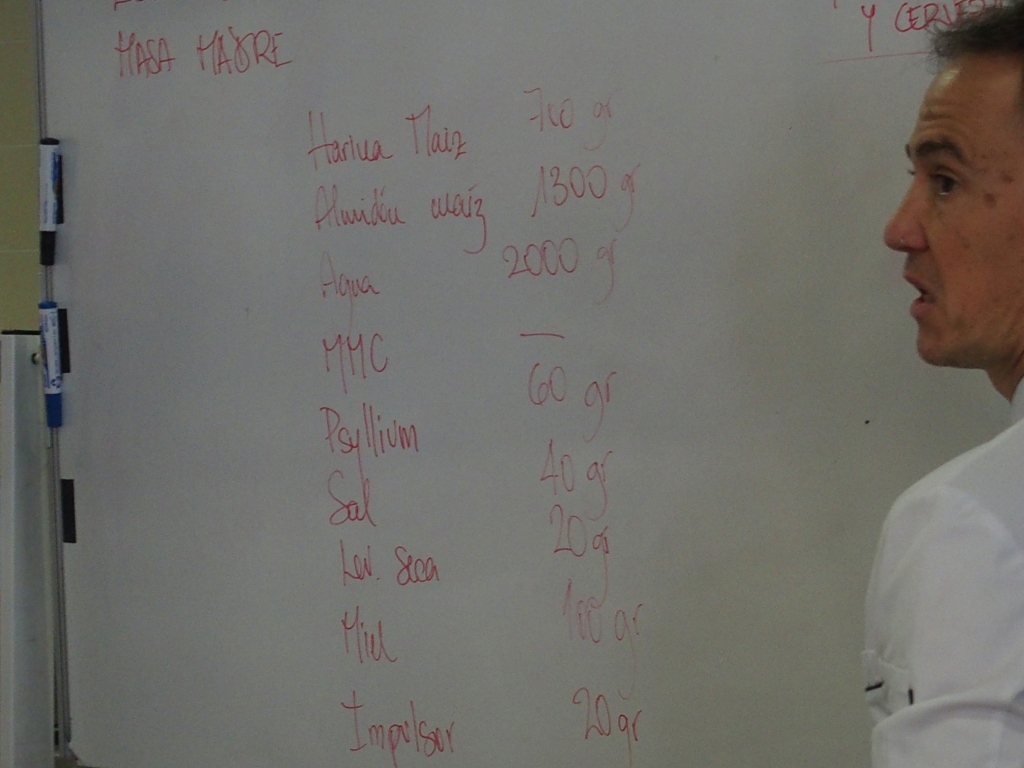 MASA MADRE
Y CERVEZA
Harina Maiz 700 gr
Almidón maíz 1300 gr
Agua 2000 gr
MMC —
Psyllium 60 gr
Sal 40 gr
Lev. Seca 20 gr
Miel 100 gr
Impulsor 20 gr